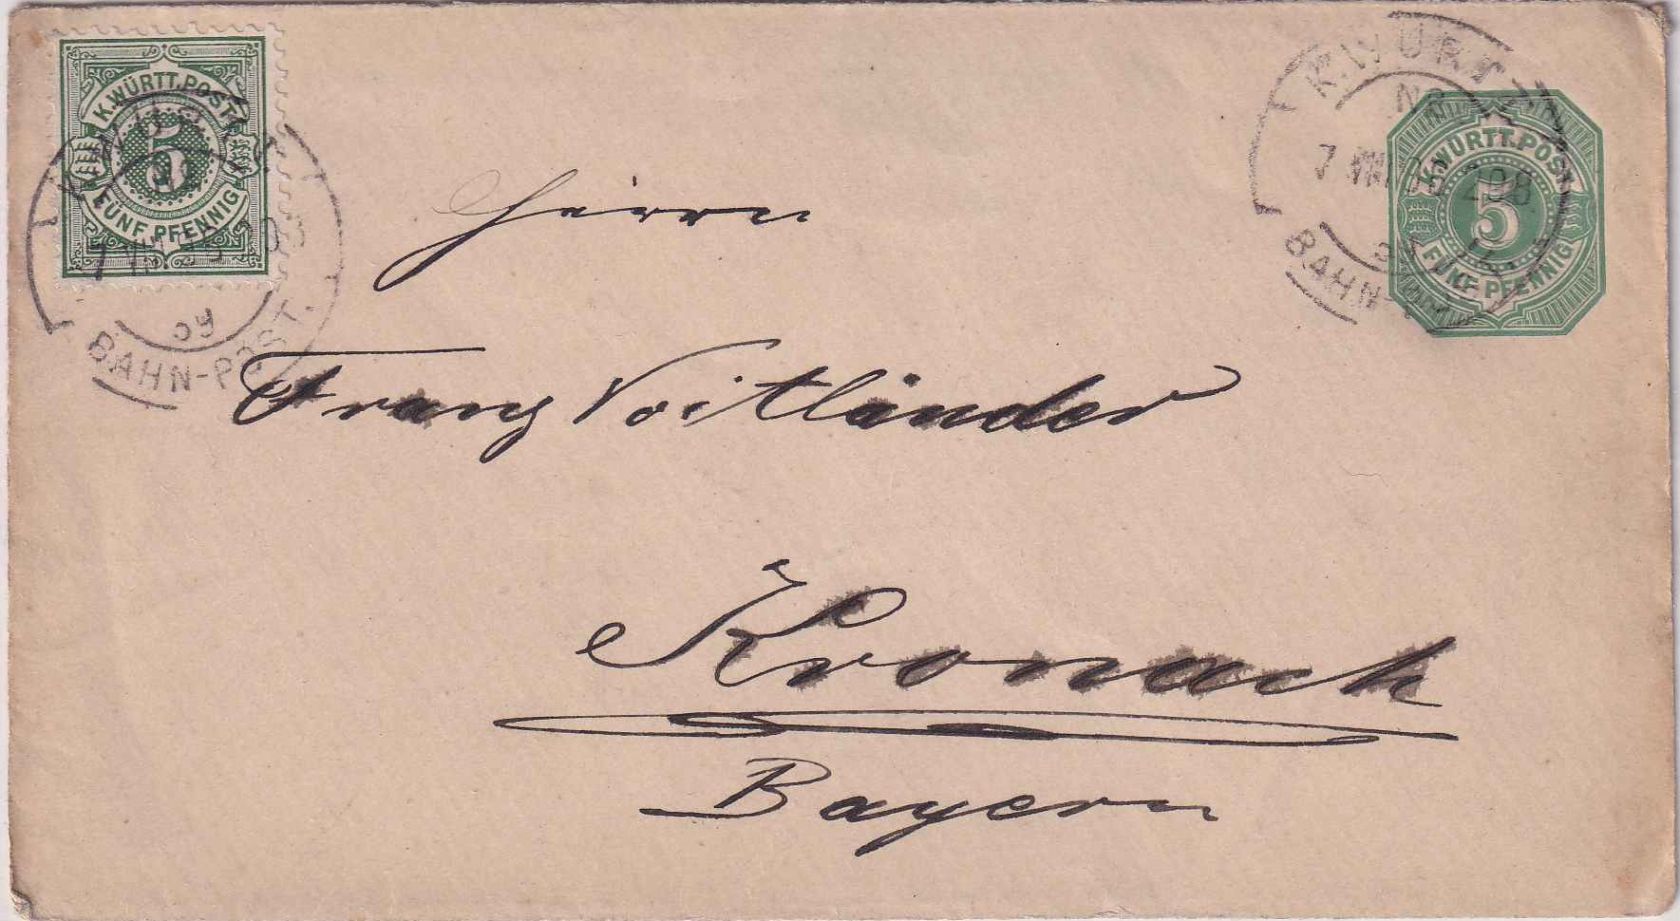 K.WÜRTT.POST
5
FÜNF PFENNIG
BAHN-POST.
K.WÜRTT.
7 VIII 208
BAHN-
K.WÜRTT.POST
5
FÜNF PFENNIG
Herrn
Franz Voitländer
Kronach
Bayern